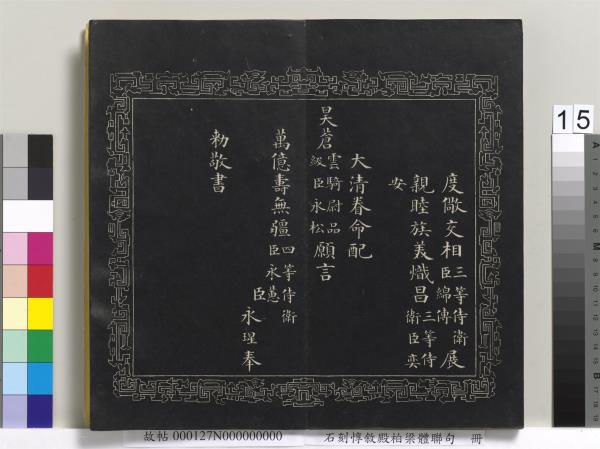 度儆交相三等侍衛臣綿傳展
親睦族美熾昌三等侍衛臣奕
安
大清眷命配
昊蒼雲騎尉品級臣永松願言
萬億壽無疆四等侍衛臣永蕙
臣永瑆奉
勅敬書
15
故帖 000127N000000000 石刻惇敘殿柏梁體聯句 冊